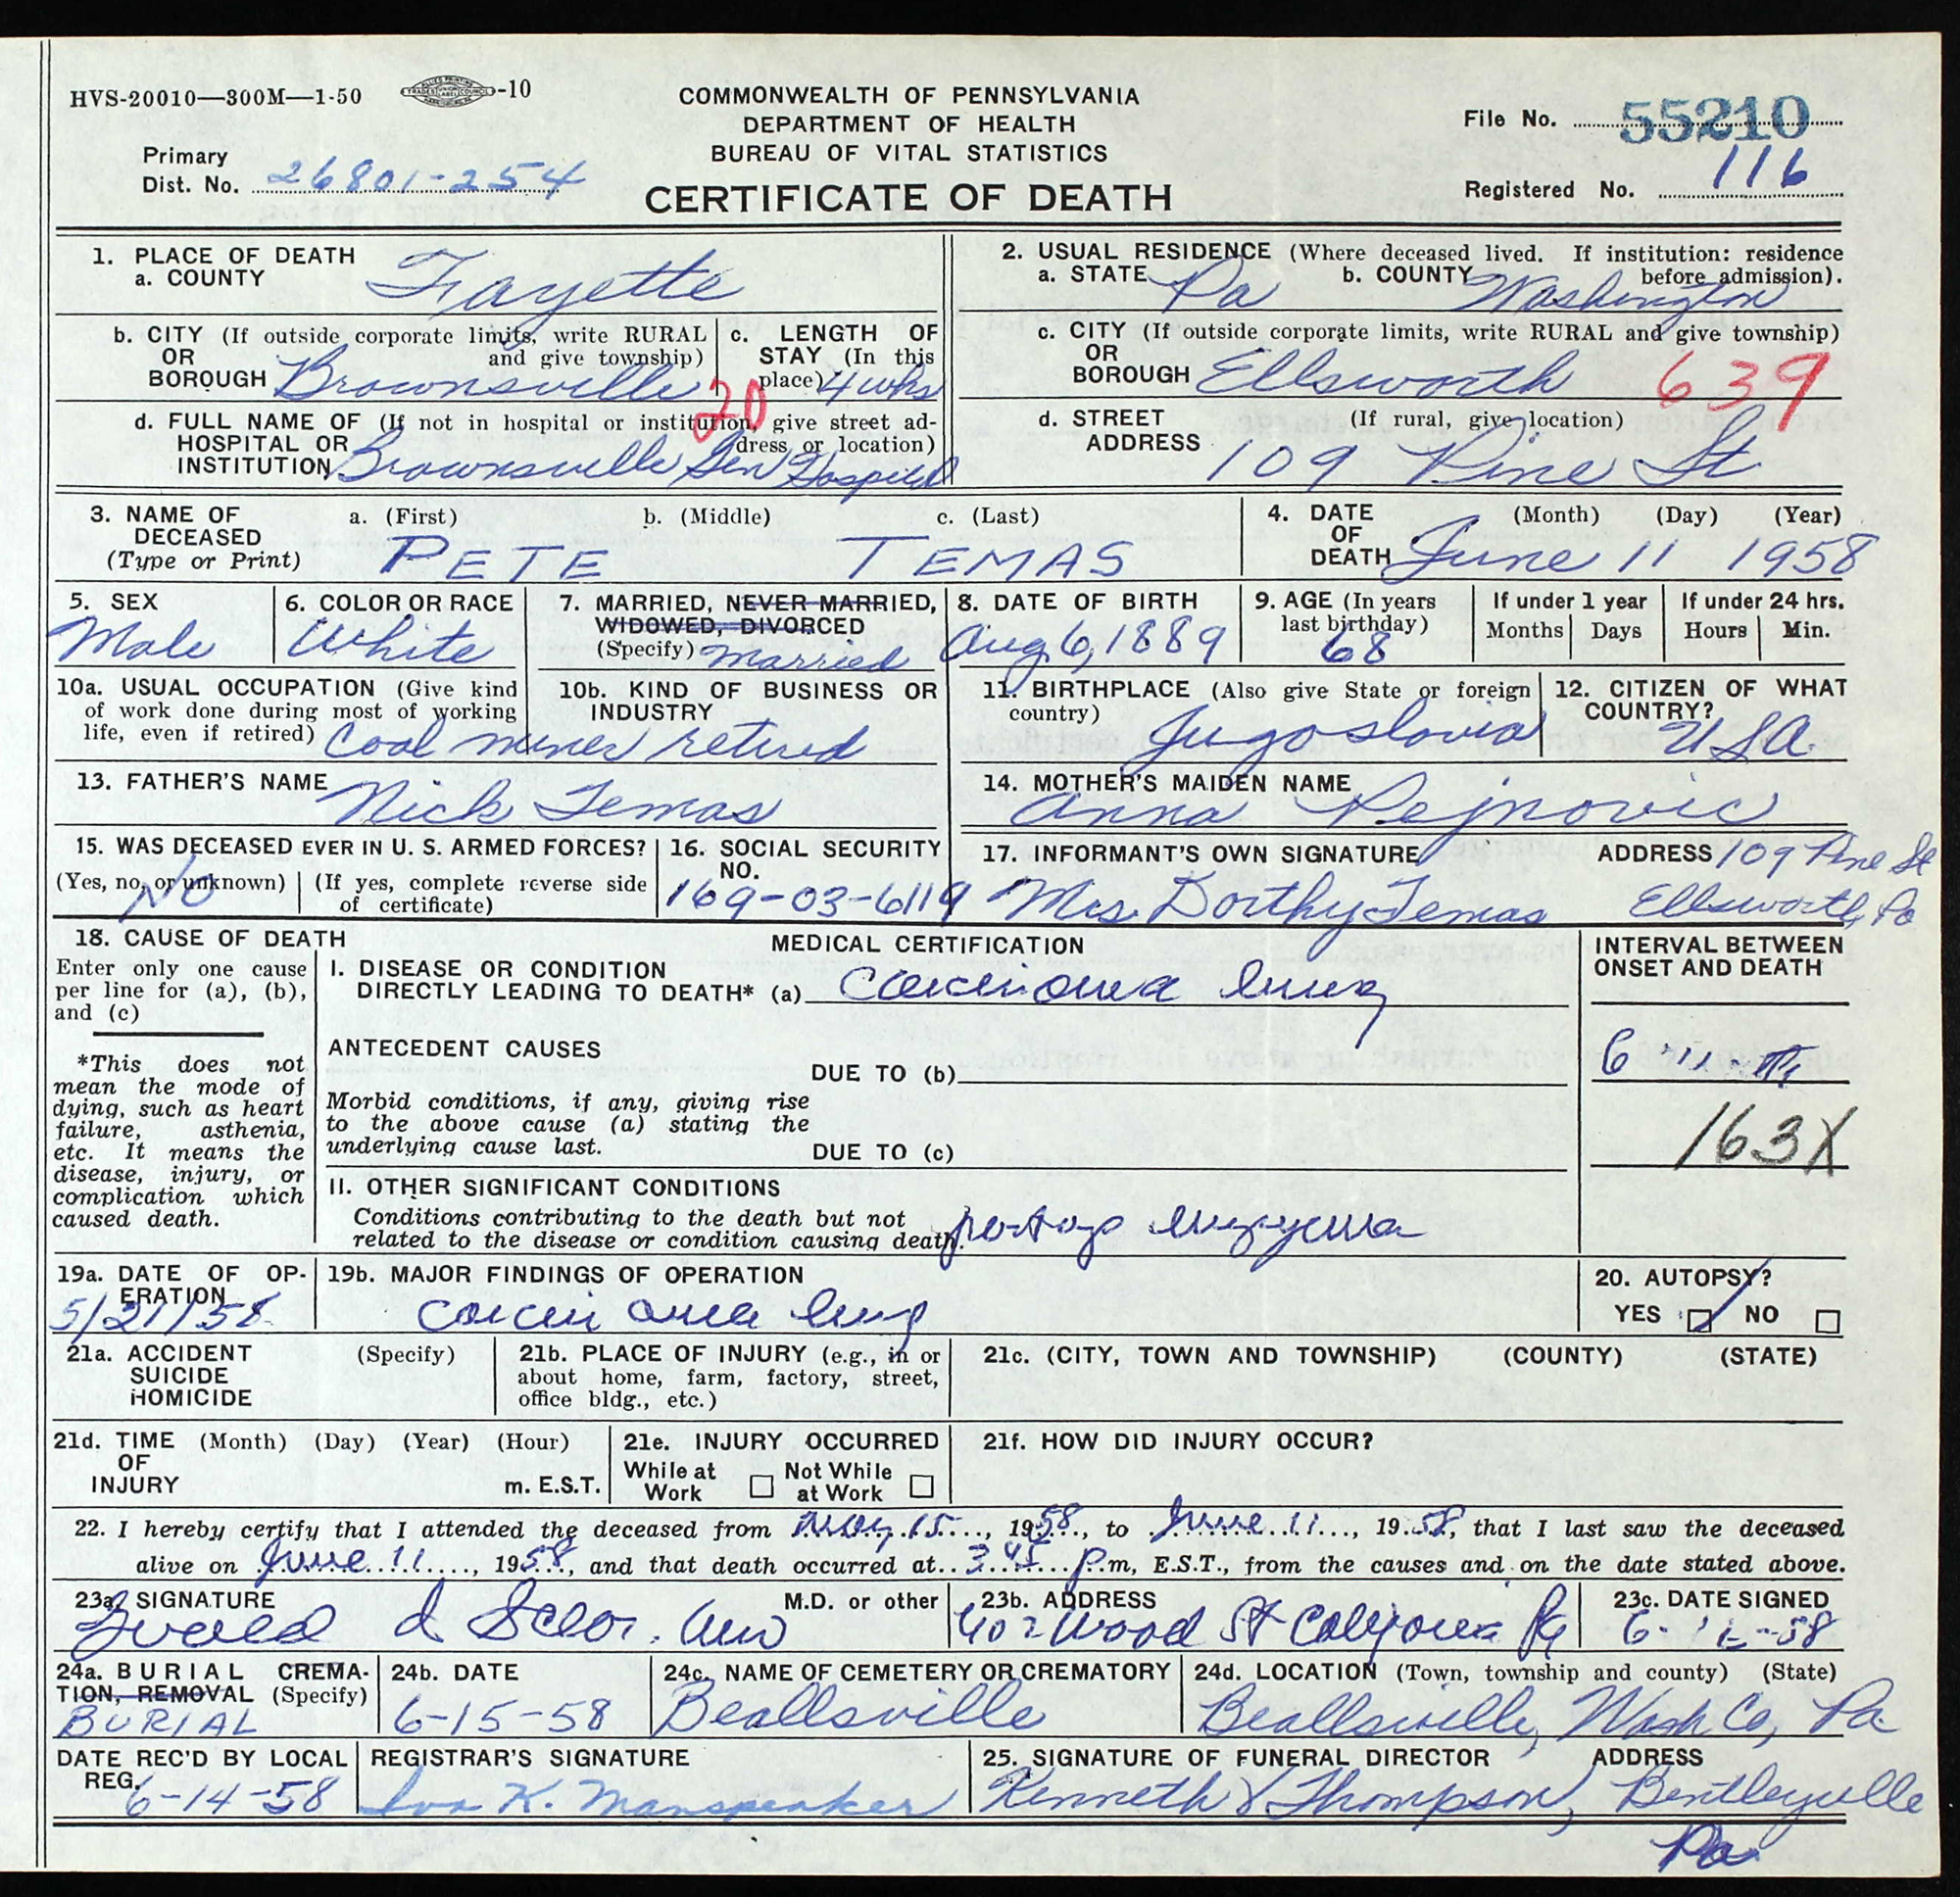 HVS-20010—300M—1-50 -10
COMMONWEALTH OF PENNSYLVANIA
DEPARTMENT OF HEALTH
BUREAU OF VITAL STATISTICS
CERTIFICATE OF DEATH
File No. 55210
Registered No. 116
Primary
Dist. No. 26801-254
1. PLACE OF DEATH
a. COUNTY Fayette
2. USUAL RESIDENCE (Where deceased lived. If institution: residence
a. STATE Pa b. COUNTY Washington before admission).
b. CITY (If outside corporate limits, write RURAL
OR and give township)
BOROUGH Brownsville
c. LENGTH OF
STAY (In this
place) 4 wks
20
c. CITY (If outside corporate limits, write RURAL and give township)
OR
BOROUGH Ellsworth 639
d. FULL NAME OF (If not in hospital or institution, give street ad-
HOSPITAL OR dress or location)
INSTITUTION Brownsville Gen Hospital
d. STREET (If rural, give location)
ADDRESS 109 Pine St
3. NAME OF a. (First) b. (Middle) c. (Last)
DECEASED
(Type or Print) PETE TEMAS
4. DATE (Month) (Day) (Year)
OF
DEATH June 11 1958
5. SEX
Male
6. COLOR OR RACE
White
7. MARRIED, NEVER MARRIED,
WIDOWED, DIVORCED
(Specify) Married
8. DATE OF BIRTH
Aug 6, 1889
9. AGE (In years
last birthday)
68
If under 1 year
Months Days
If under 24 hrs.
Hours Min.
10a. USUAL OCCUPATION (Give kind
of work done during most of working
life, even if retired) Coal miner retired
10b. KIND OF BUSINESS OR
INDUSTRY
11. BIRTHPLACE (Also give State or foreign
country) Jugoslovia
12. CITIZEN OF WHAT
COUNTRY?
USA.
13. FATHER'S NAME
Nick Temas
14. MOTHER'S MAIDEN NAME
Anna Pejnovic
15. WAS DECEASED EVER IN U. S. ARMED FORCES?
(Yes, no, or unknown) (If yes, complete reverse side
of certificate)
No
16. SOCIAL SECURITY
NO.
169-03-6119
17. INFORMANT'S OWN SIGNATURE ADDRESS 109 Pine St
Mrs. Dorthy Temas Ellsworth, Pa
18. CAUSE OF DEATH
Enter only one cause
per line for (a), (b),
and (c)
*This does not
mean the mode of
dying, such as heart
failure, asthenia,
etc. It means the
disease, injury, or
complication which
caused death.
MEDICAL CERTIFICATION
I. DISEASE OR CONDITION
DIRECTLY LEADING TO DEATH* (a) Carcinoma lung
ANTECEDENT CAUSES
DUE TO (b)
Morbid conditions, if any, giving rise
to the above cause (a) stating the
underlying cause last.
DUE TO (c)
II. OTHER SIGNIFICANT CONDITIONS
Conditions contributing to the death but not
related to the disease or condition causing death. postop empyema
INTERVAL BETWEEN
ONSET AND DEATH
6
163X
19a. DATE OF OP-
ERATION
5/21/58
19b. MAJOR FINDINGS OF OPERATION
Carcinoma lung
20. AUTOPSY?
YES NO
21a. ACCIDENT (Specify)
SUICIDE
HOMICIDE
21b. PLACE OF INJURY (e.g., in or
about home, farm, factory, street,
office bldg., etc.)
21c. (CITY, TOWN AND TOWNSHIP) (COUNTY) (STATE)
21d. TIME (Month) (Day) (Year) (Hour)
OF
INJURY m. E.S.T.
21e. INJURY OCCURRED
While at Not While
Work at Work
21f. HOW DID INJURY OCCUR?
22. I hereby certify that I attended the deceased from May 15, 1958, to June 11, 1958, that I last saw the deceased
alive on June 11, 1958, and that death occurred at 3:45 P.m, E.S.T., from the causes and on the date stated above.
23a. SIGNATURE M.D. or other
23b. ADDRESS
402 Wood St California Pa
23c. DATE SIGNED
6- -58
24a. BURIAL CREMA-
TION, REMOVAL (Specify)
BURIAL
24b. DATE
6-15-58
24c. NAME OF CEMETERY OR CREMATORY
Beallsville
24d. LOCATION (Town, township and county) (State)
Beallsville, Wash Co, Pa
DATE REC'D BY LOCAL
REG.
6-14-58
REGISTRAR'S SIGNATURE
Iva K. Manspeaker
25. SIGNATURE OF FUNERAL DIRECTOR ADDRESS
Kenneth Y Thompson, Bentleyville
Pa